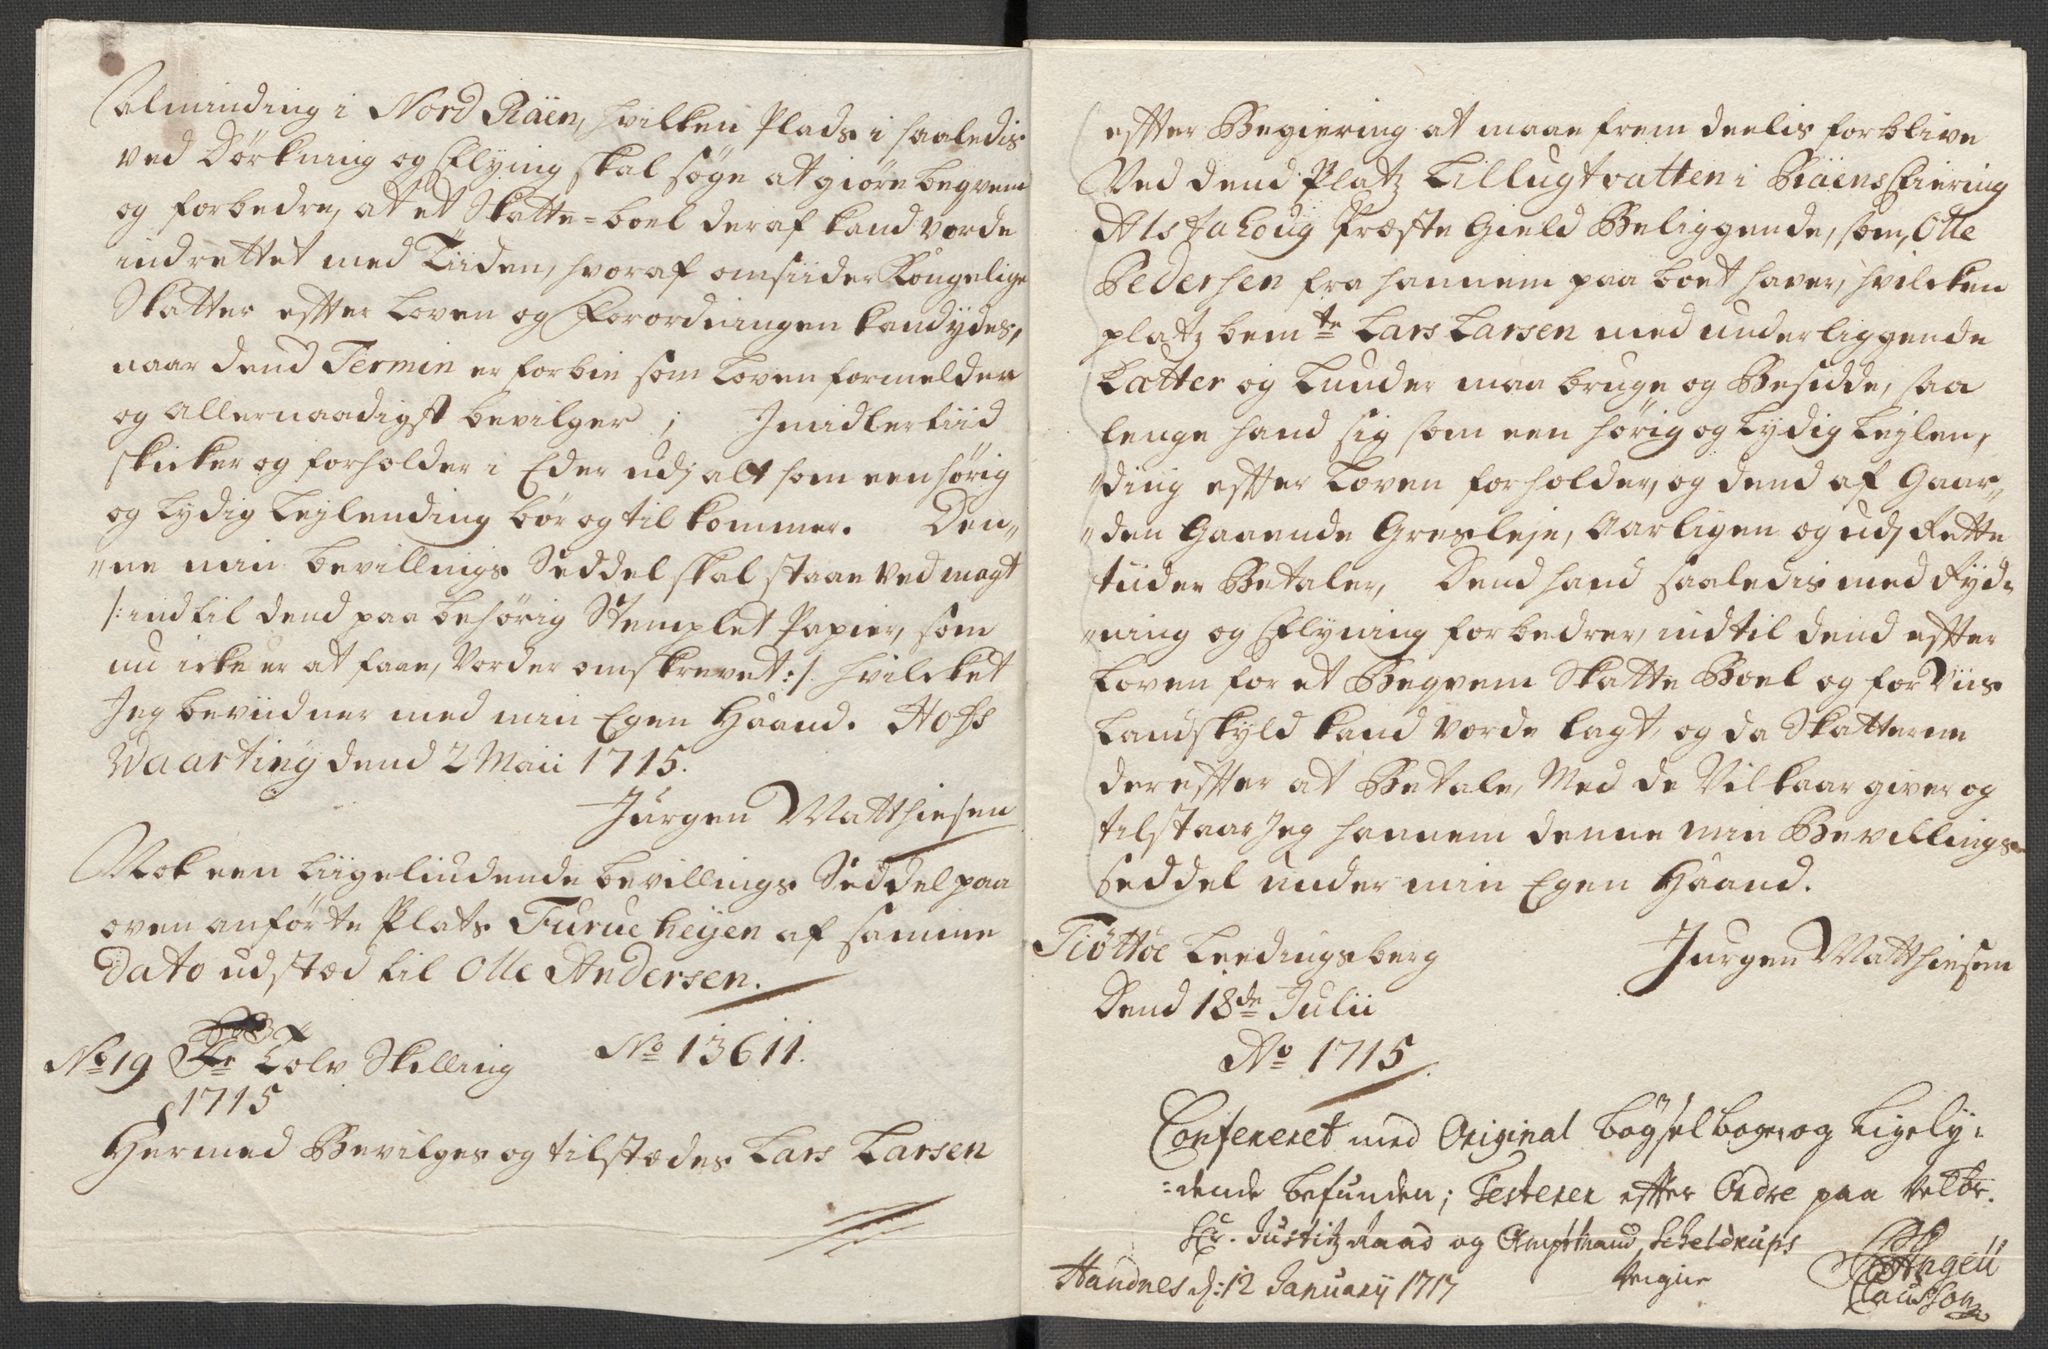 alminding i Nord Räen, hvilken Plads i saaledis
ved Dörkning og Flying skal søge at giöre beqvem
og forbedre, at et Skatte=boel deraf kand vorde
indrettet med Tiiden, hvoraf omsiider Kongelige
Skatter effter Loven og Forordningen kand ydes,
naar dend Termin er forbie som Loven formelder
og allernaadigst bevilger; Imidlertiid
skicker og forholder i Eder udj alt som een hörig
og Lydig Leylending bör og til kommer. Den„
„ne min bevillings Seddel skal staae ved magt
/: indtil dend paa behörig Stemplet Papier, som
nu icke er at faae, vorder omskrevet :/ hvilcket
Jeg beviidner med min Egen Haand. Hofs
Waarting dend 2 Maii 1715.
Jürgen Matthiesen
Nok een liigeliudende bevillings Seddel paa
oven anförte Plats Furueheyen af samme
Dato udstæd til Olle Andersen.
No 19 Tolv Skilling No 13611.
1715
Hermed Bevilges og tilstædes Lars Larsen
effter Begiering at maae frem deelis forblive
Ved dend Platz Lillugtvatten i Räens Fiering
Alstahoug Præste Gield Beliggende, som Olle
Pedersen fra hannem paa boet haver, hvilcken
platz bemte Lars Larsen med underliggende
Latter og Lunder maa bruge og Besidde, saa
lenge hand sig som een hörig og Lydig Leylen„
„ding effter Loven forholder, og dend af Gaar„
„den Gaaende Gresleje, Aarligen og udj Rette
tiider Betaler, Dend hand saaledis med Ryd„
„ning og Flyning forbedrer, indtil dend effter
Loven for et Beqvem Skatte Boel og for Viis
Landskyld kand vorde lagt, og da Skatterne
dereffter at Betale, Med de Vilkaar giver og
tilstaar Jeg hannem denne min Bevillings
Seddel under min Egen Haand.
Tiöttöe Leedingsberg Jürgen Matthiesen
Dend 18de Julii
Ao 1715.
Confereret med Original bögselbogen og Ligely=
=dende befunden; Testerer effter Ordre paa Velbr.
Hr. Justitz Raad og Amptmand Schelderups
Vegne
Handnes d: 12 January 1717 Angell
Clausson